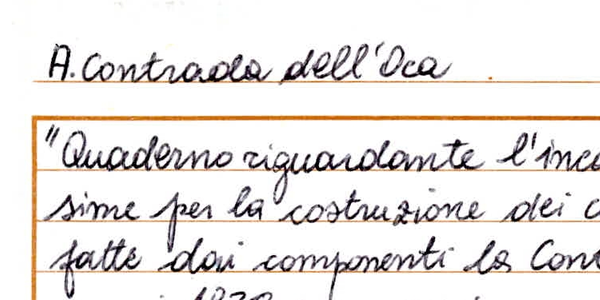 A. Contrada dell'Oca
"Quaderno riguardante l'inca
sime per la costruzione dei c
fatte dai componenti la Cont